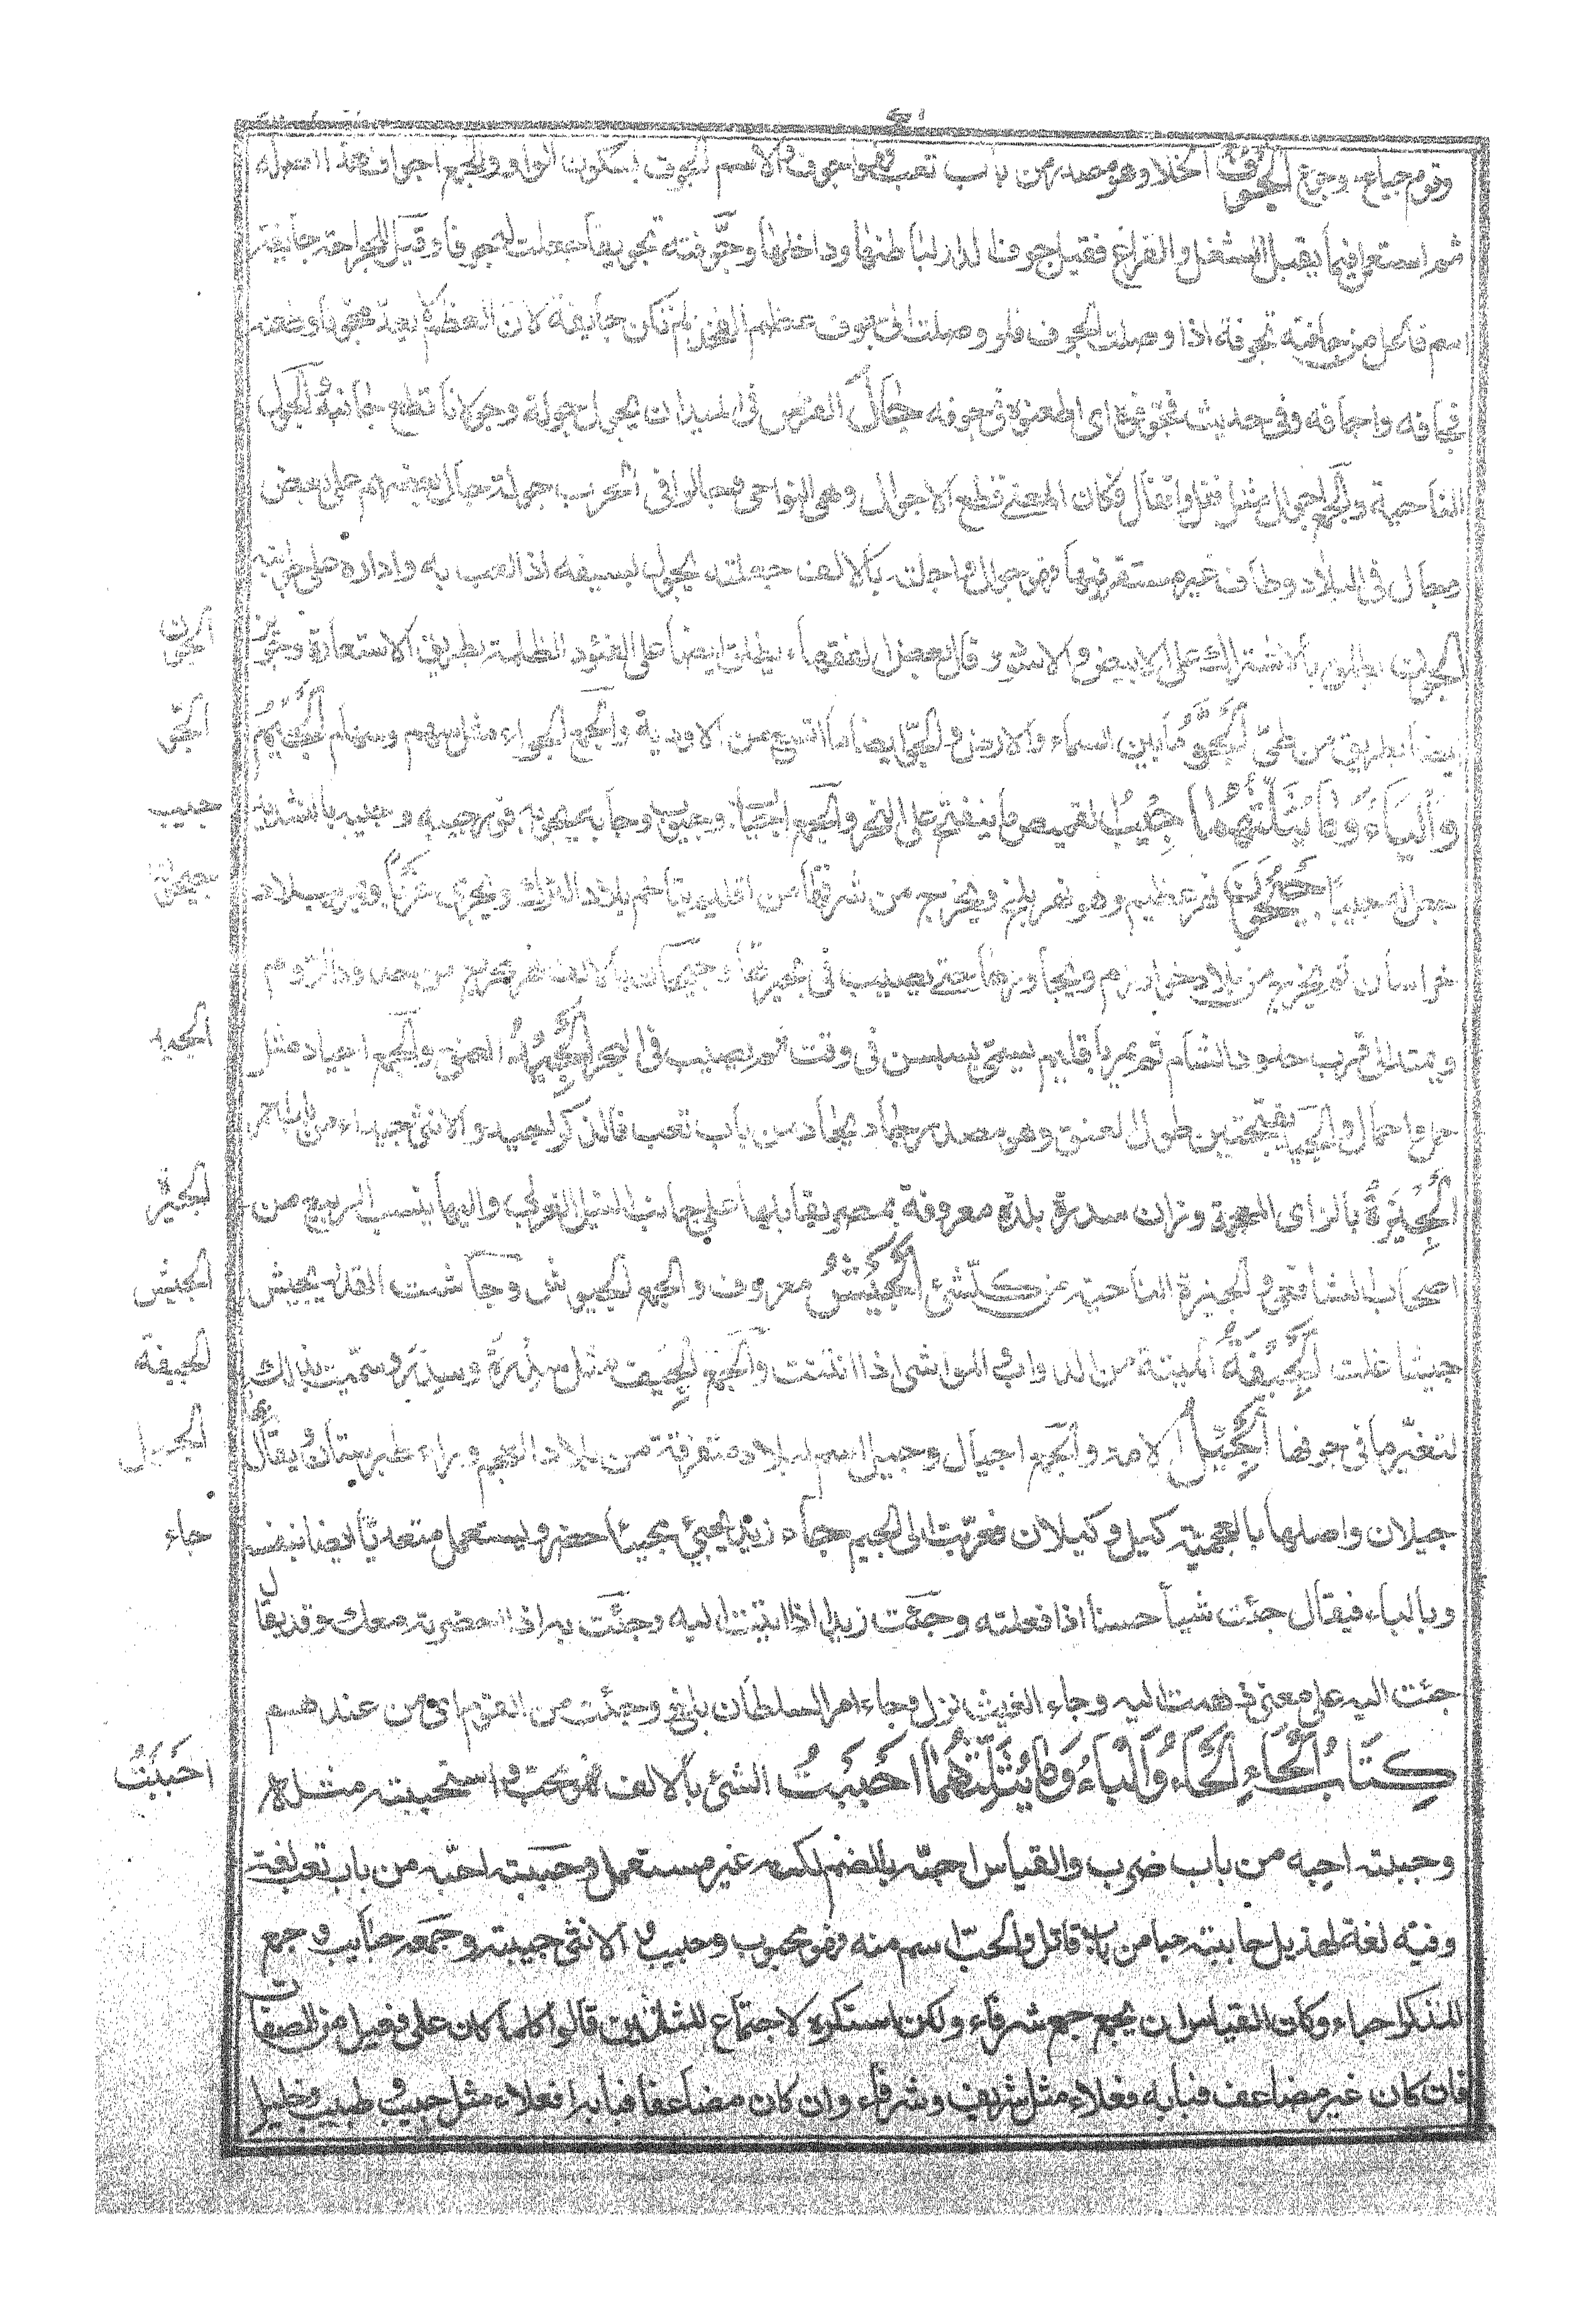 وقوم جياع وجوع الجوف الخلاء وهو مصدر من باب تعب فهو اجوف والاسم الجوف بسكون الواو والجمع اجواف هذا اصله
ثم استعمل فيما يقبل الشغل والفراغ فقيل جوف الدار لباطنها وداخلها وجوّفته تجويفا جعلت له جوفا وقيل للجراحة جايفة
اسم فاعل من جافته تجوفه اذا وصلت الجوف فلو وصلت الى جوف عظم الفخذ لم تكن جايفة لان العظم لا يعد مجوفا وطعنه
فجافه واجافه وفى حديث فجوّفوه اى اطعنوه فى جوفه جال الفرس فى الميدان يجول جولة وجولانا قطع جوانبه والجول
الناحية والجمع اجوال مثل قفل واقفال فكان المعنى قطع الاجوال وهى النواحى وجالوا فى الحرب جولة جال بعضهم على بعض
وجال فى البلاد وطاف غير مستقر فيها فهو جوال واجلته بالالف جعلته يجول بسيفه اذا لعب به واداره على جوانبه
الجون يطلق بالاشتراك على الابيض والاسود وقال بعض الفقهاء يطلق ايضا على الضوء والظلمة بطريق الاستعارة
الجون
ايضا بطريق من طى الجوّ ما بين السماء والارض والجوّ ايضا ما اتسع من الاودية والجمع الجواء مثل سهم وسهام الجيم
الجوّ
والياء وما يثلثهما جيب القميص ما ينفتح على النحر والجمع وجابه يجيبه قوّر جيبه وجيبه بالتشديد
جيب
جعل له جيبا جيحون نهر عظيم وهو نهر بلخ ويخرج من شرقها من اقليم يتاخم بلاد الترك ويجرى غربا ويمر ببلاد
جيحون
خراسان ثم يخرج من بلاد خوارزم ويجاوزها حتى يصب فى بحيرتها وجيحان بالالف نهر يخرج من حدود الروم
ويمتد الى قرب حدود الشام ثم يمر باقليم يسمى سيس فى وقت ثم يصب فى البحر الجيد العنق والجمع اجياد مثل
الجيد
حمل واحمال والجيد بفتحتين طول العنق وهو مصدر جاد يجاد من باب تعب فالذكر اجيد والانثى جيداء من باب احمر
الجيزة بالزاى المعجمة وزان سدرة بلدة معروفة بمصر يقابلها على جانب النيل الغربى واليها ينسب الربيع من
الجيزة
اصحاب الشافعى والجيزة الناحية من كل شئ الجيش معروف والجمع الجيوش وجاشت القدر تجيش
الجيش
جيشا غلت الجيفة الميتة من الدواب والمواشى اذا انتنت والجمع الجيف مثل سدرة وسدر وسميت بذلك
الجيفة
لتغيّر ما فى جوفها الجيل الامة والجمع اجيال وجيل اسم لبلاد متفرقة من بلاد العجم وراء طبرستان ويقال
الجيل
جيلان واصلها بالعجمية كيل وكيلان فعربت الى الجيم جاء زيد يجئ مجيئا حضر ويستعمل متعديا ايضا بنفسه
جاء
وبالباء فيقال جئت شيأ حسنا اذا فعلته وجئت زيدا اذا اتيت اليه وجئت به اذا احضرته معك وقد يقال
جئت اليه على معنى ذهبت اليه وجاء الغيث نزل وجاء امر السلطان بلغ وجئت من القوم اى من عندهم
كتاب الحاء الحاء والباء وما يثلثهما احببت الشئ بالالف فهو محب واستحببته مثله
احببت
وحببته احبه من باب ضرب والقياس احبّه بالضم لكنه غير مستعمل وحببته احبّه من باب تعب لغة
وفيه لغة لهذيل حاببته حبابا من باب قاتل والحبّ اسم منه فهو محبوب وحبيب والانثى حبيبة وجمعه حبايب وجمع
المذكر احباء وكان القياس ان يجمع جمع شرفاء ولكن استكره لاجتماع المثلين قالوا كلما كان على فعيل من الصفات
فان كان غير مضاعف فبابه فعلاء مثل شريف وشرفاء وان كان مضاعفا فبابه افعلاء مثل حبيب وطبيب وخليل